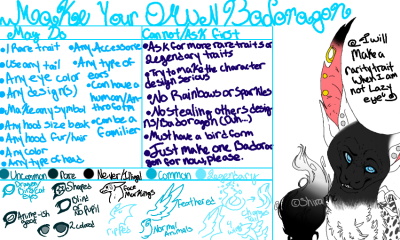 Make Your OWN Badoragon
May Do
Cannot/Ask first
•1 Rare trait
•Use any tail
•Any eye color
•Any design(s)
•Make any symbol
•Any hoof size
•Any hood fur/hair
•Any color
•Any type of head
•Any Accessories
•Any type of ears
•Can have a human/Anthro form
•Can be a Familier
•Ask for more rare traits or Legendary traits
•Try to make the character design serious
•No Rainbows or sparkles
•No stealing others designs/Badoragon (Duh...)
•Must have a bird form
•Just make one Badoragon for now, please.
"I will Make a rarity trait when I am not Lazy eye"
Uncommon
Rare
Never/Illegal
Common
Legendary
Shaped
Glint or No Pupil
Anime-ish good
2 colored
Face Markings
Feathered
Normal Animals
©Shira